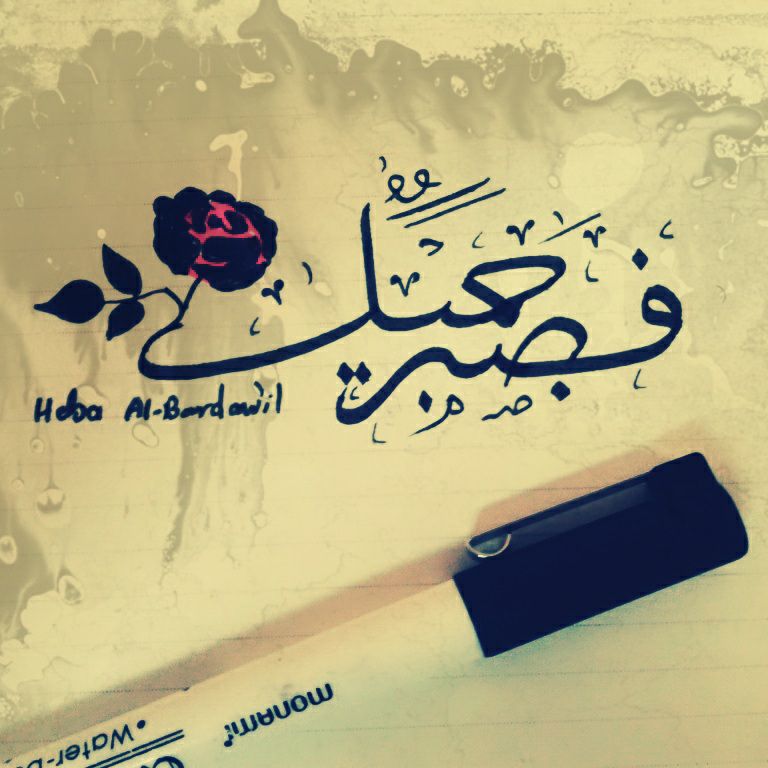 فَصَبْرٌ جَمِيلٌ
Heba Al-Bardawil
monami
Water-B